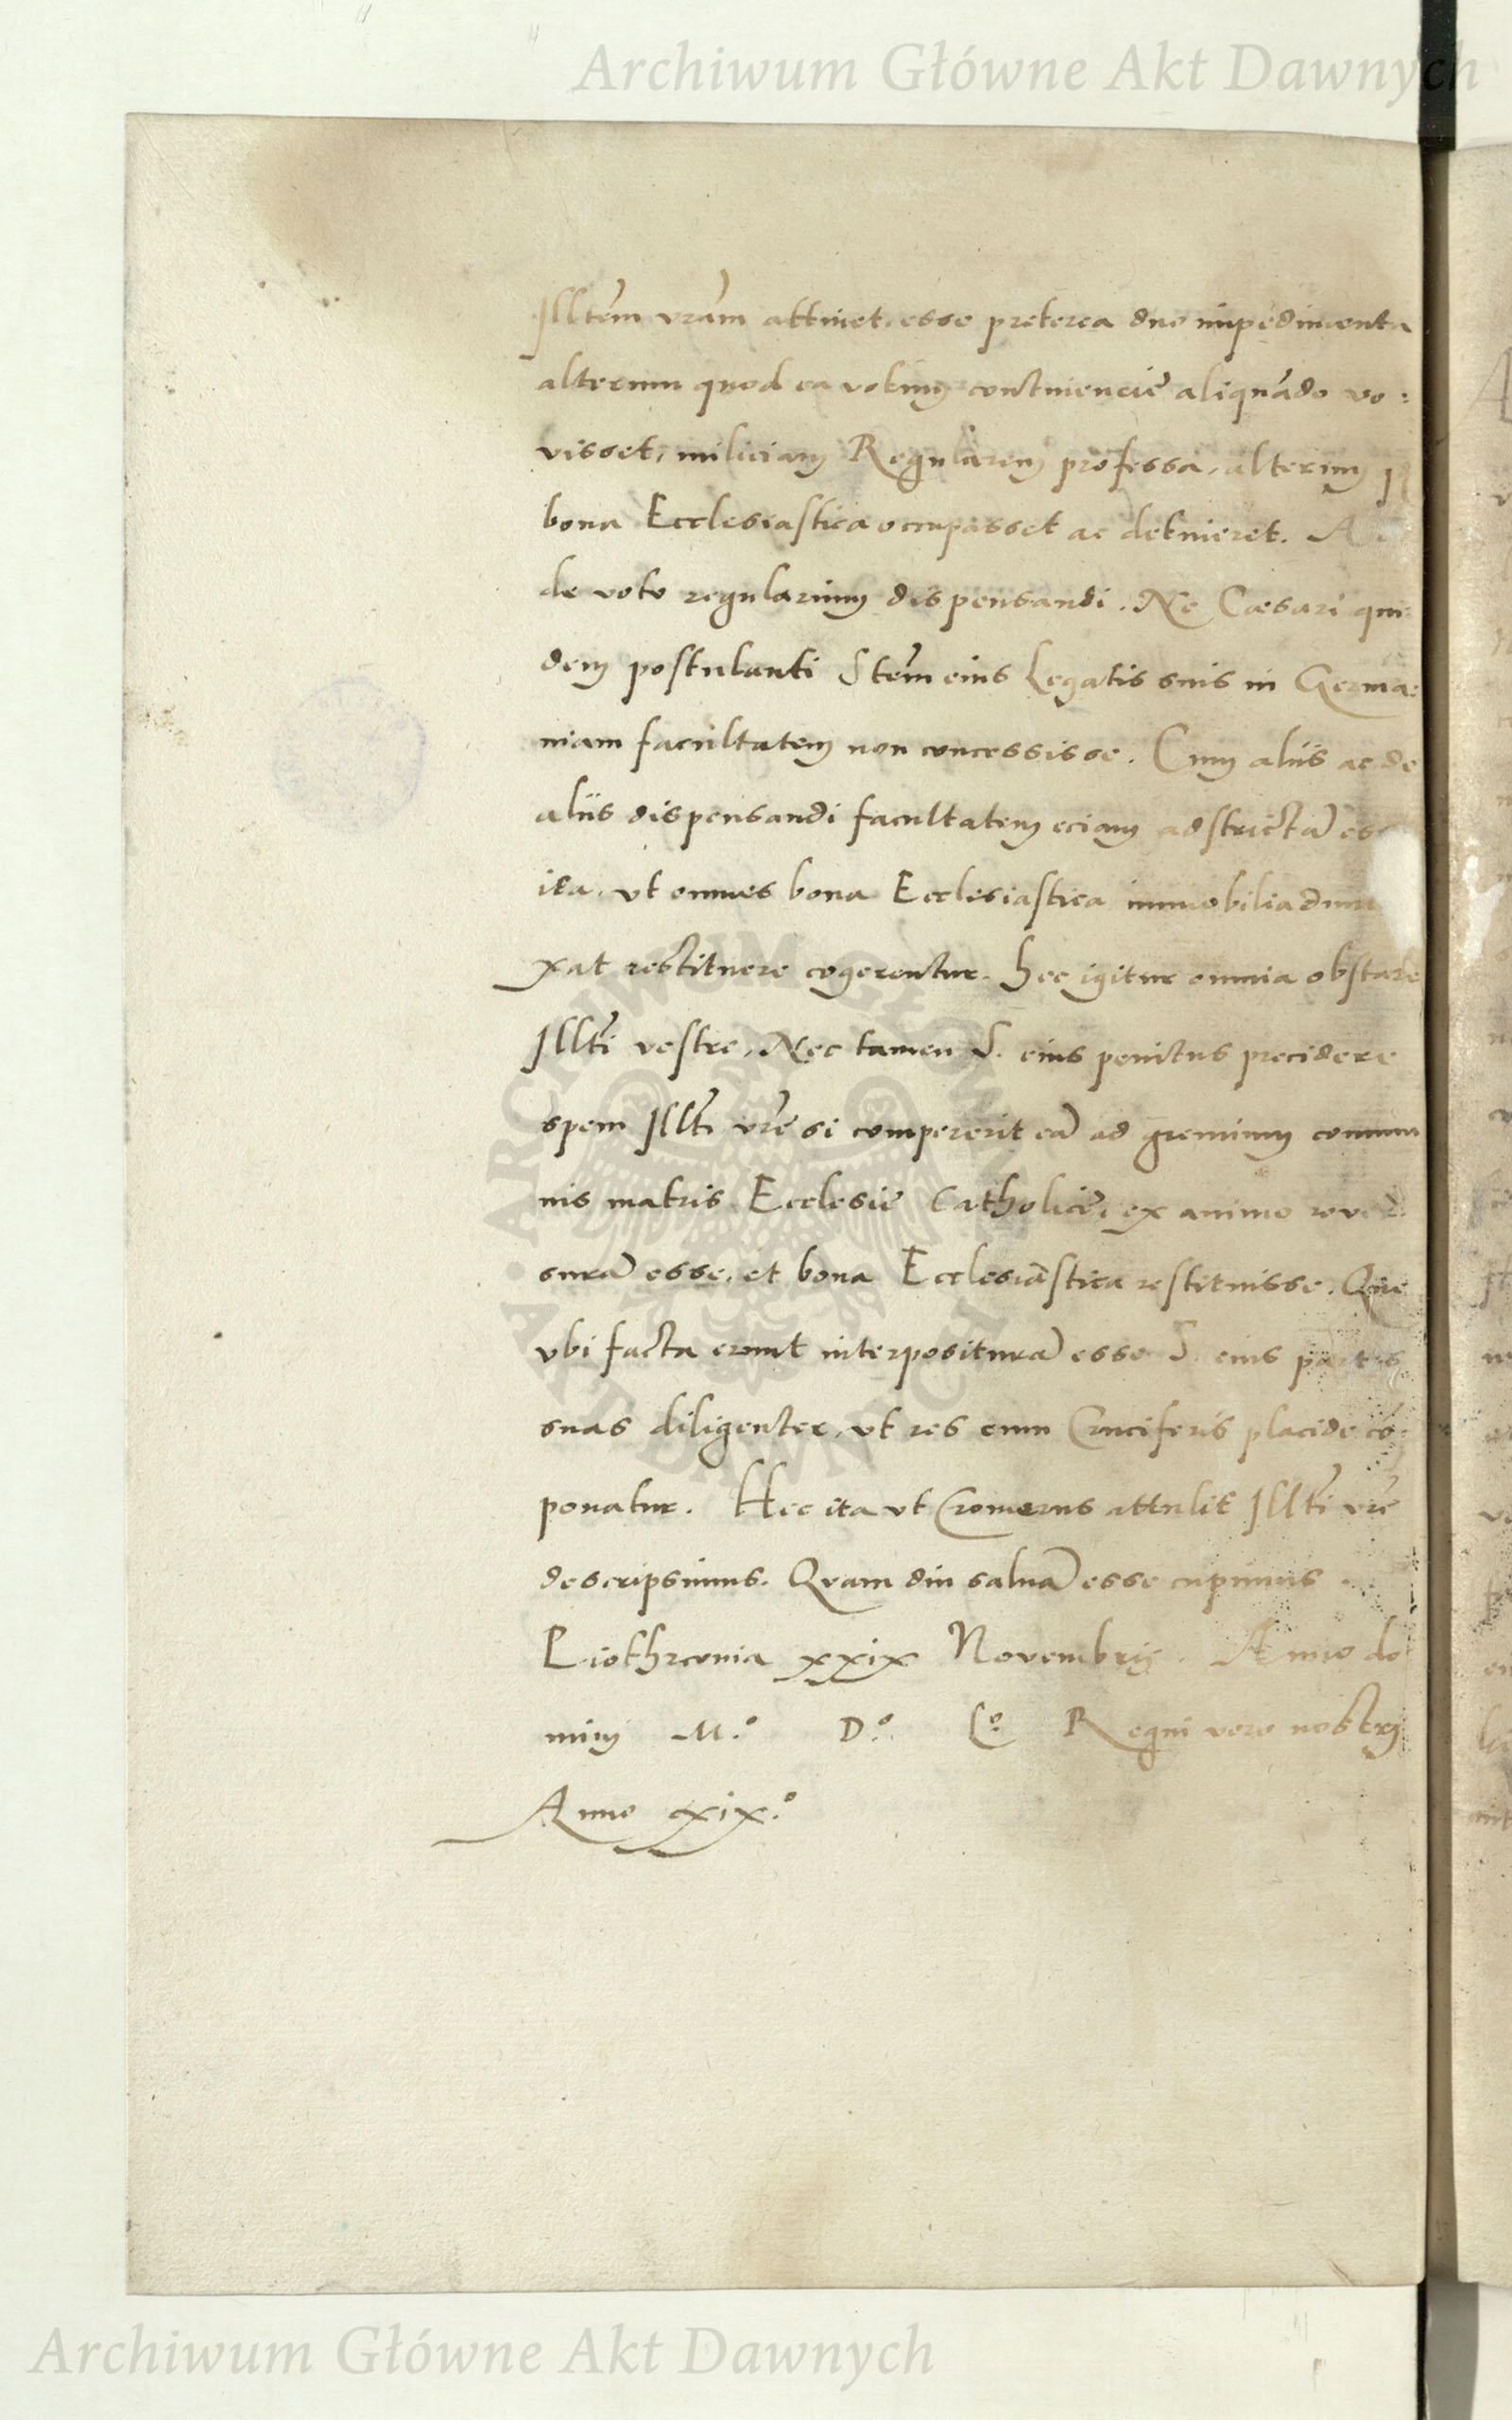 Archiwum Główne Akt Dawnych
Illtem vram attinet, esse preterea duo impedimenta
alterum quod ea votum continencie aliquãdo vo:
visset, miliciam Regularem professa, alterum
bona Ecclesiastica occupasset ac detineret.
de voto regularium dispensandi. Ne Cæsari qui:
dem postulanti Stem eius Legatis suis in Germa:
niam facultatem non concessisse. Cum aliis ac de
aliis dispensandi facultatem eciam adstrictã
ita, ut omnes bona Ecclesiastica immobilia dum
xat restituere cogerentur. Hec igitur omnia obstare
Illti vestre, Nec tamen S. eius penitus precidere
spem Illti vre si compererit eã ad gremium commu
nis matris Ecclesie Catholice, ex animo rever:
surã esse, et bona Ecclesiastica restituisse. Que
vbi facta erunt interpositurã esse S. eius partes
suas diligenter, vt res cum Cruciferis placide cõ:
ponatur. Hec ita vt Cromerus attulit Illti vre
descripsimus. Quam diu saluã esse cupimus.
Piothrconia xxix Novembris. Anno do
mini M.º D.º L.º Regni vero nostri
Anno xxix.º
ARCHIWUM GŁÓWNE AKT DAWNYCH
Archiwum Główne Akt Dawnych